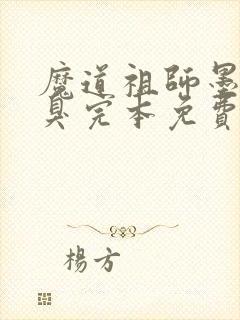 魔道祖師墨
臭完本免費
楊方